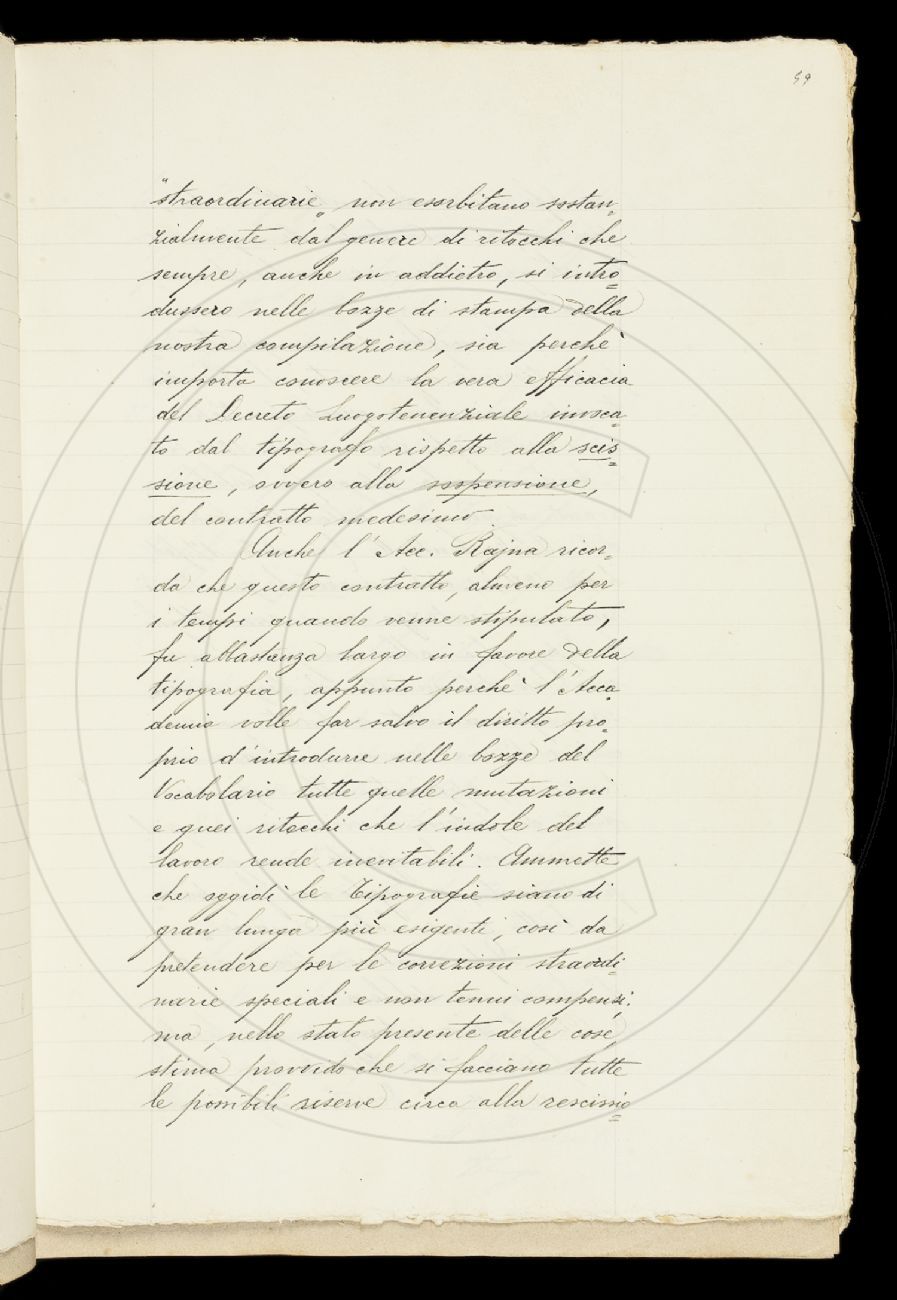 59
"straordinarie„ non esorbitano sostan=
zialmente dal genere di ritocchi che
sempre, anche in addietro, si intro=
dussero nelle bozze di stampa della
nostra compilazione, sia perchè
importa conoscere la vera efficacia
del Decreto Luogotenenziale invoca=
to dal tipografo rispetto alla scis=
sione, ovvero alla sospensione,
del contratto medesimo.
Anche l'Acc. Rajna ricor=
da che questo contratto, almeno per
i tempi quando venne stipulato,
fu abbastanza largo in favore della
tipografia, appunto perchè l'Acca=
demia volle far salvo il diritto pro=
prio d'introdurre nelle bozze del
Vocabolario tutte quelle mutazioni
e quei ritocchi che l'indole del
lavoro rende inevitabili. Ammette
che oggidì le Tipografie siano di
gran lunga più esigenti, così da
pretendere per le correzioni straordi=
narie speciali e non tenui compensi;
ma, nello stato presente delle cose,
stima provvido che si facciano tutte
le possibili riserve circa alla rescissio=